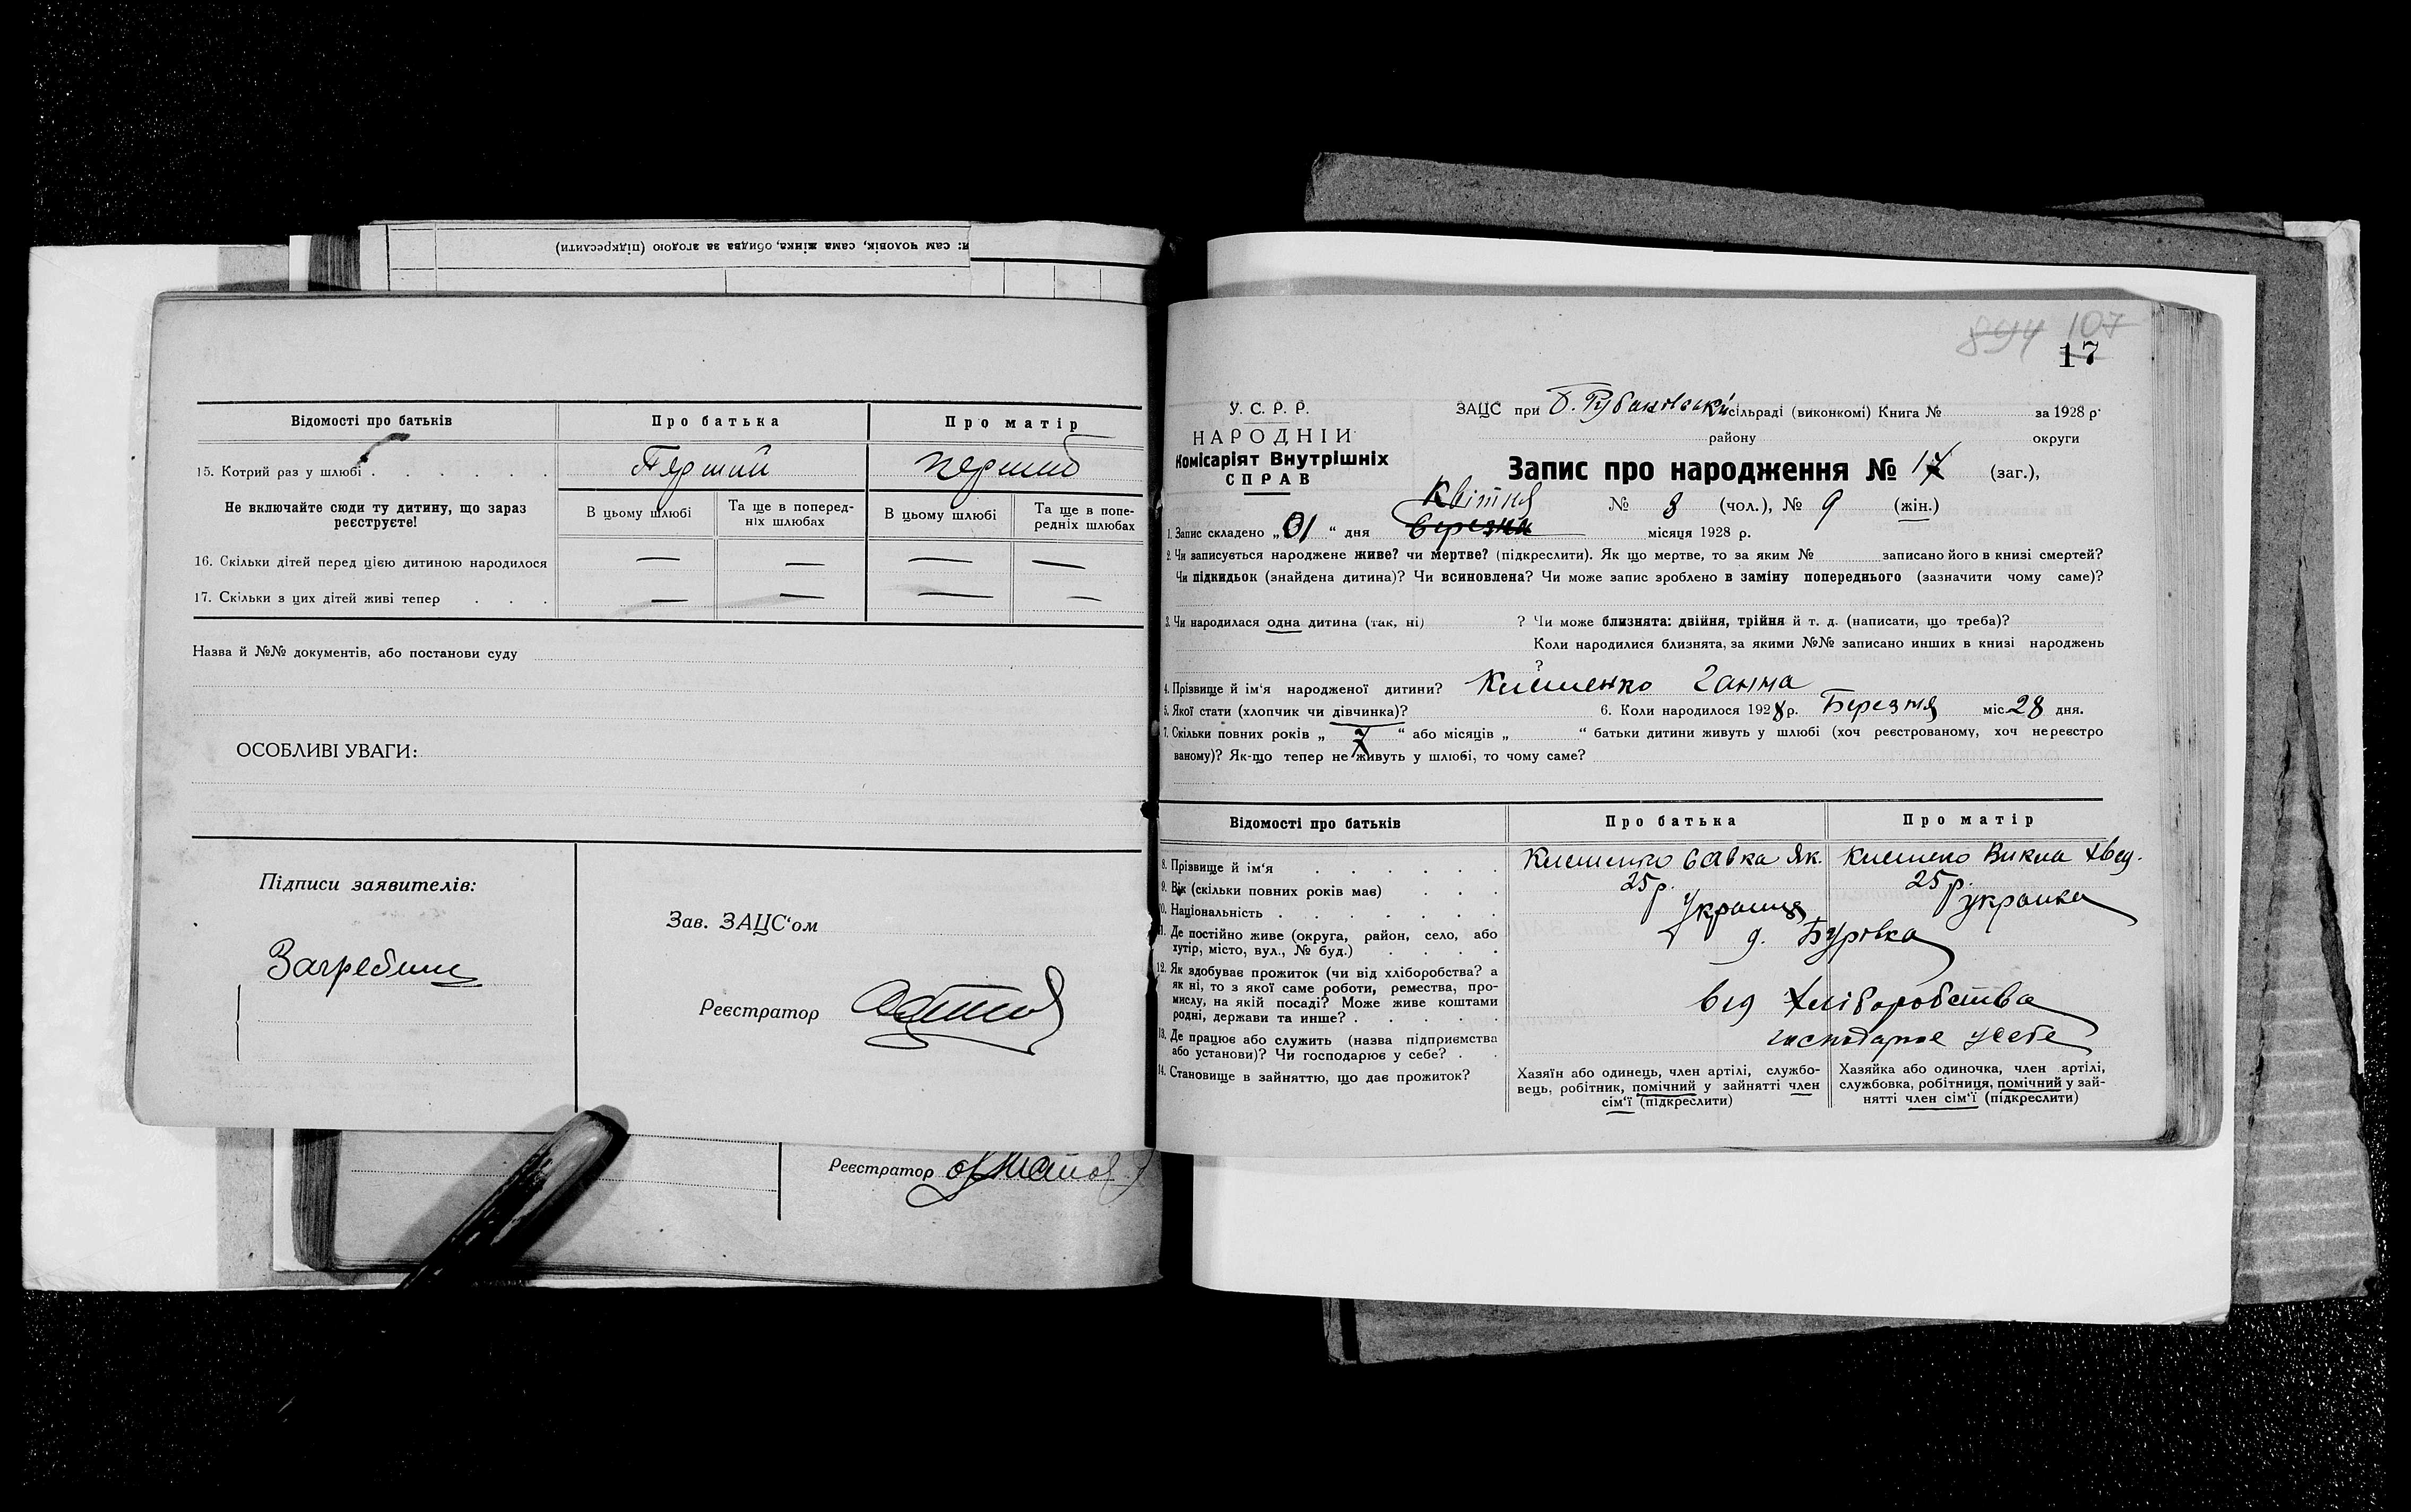 и: сам чоловік, сама жінка, обидва за згодою (підкреслити)
Відомості про батьків
Про батька
Про матір
15. Котрий раз у шлюбі . . . . . .
Перший
перший
Не включайте сюди ту дитину, що зараз реєструєте!
В цьому шлюбі
Та ще в поперед-
ніх шлюбах
В цьому шлюбі
Та ще в попе-
редніх шлюбах
16. Скільки дітей перед цією дитиною народилося — — — —
17. Скільки з цих дітей живі тепер . . . — — — —
Назва й №№ документів, або постанови суду
ОСОБЛИВІ УВАГИ:
Підписи заявителів:
Зав. ЗАЦС'ом
Реєстратор
Реєстратор
894 107
17
У. С. Р. Р.
НАРОДНІЙ
Комісаріят Внутрішніх
СПРАВ
ЗАЦС при Б. Рубановській сільраді (виконкомі) Книга № за 1928 р.
району округи
Запис про народження № 17 (заг.),
№ 8 (чол.), № 9 (жін.)
Квітня
1. Запис складено „01" дня Березня місяця 1928 р.
2. Чи записується народжене живе? чи мертве? (підкреслити). Як що мертве, то за яким № записано його в книзі смертей?
Чи підкидьок (знайдена дитина)? Чи всиновлена? Чи може запис зроблено в заміну попереднього (зазначити чому саме)?
3. Чи народилася одна дитина (так, ні) ? Чи може близнята: двійня, трійня й т. д. (написати, що треба)?
Коли народилися близнята, за якими №№ записано инших в книзі народжень
?
4. Прізвище й ім'я народженої дитини? Клименко Ганна
5. Якої стати (хлопчик чи дівчинка)? 6. Коли народилося 1928 р. Березня міс. 28 дня.
7. Скільки повних років „ 7 " або місяців „ " батьки дитини живуть у шлюбі (хоч реєстрованому, хоч нереєстро
ваному)? Як-що тепер не живуть у шлюбі, то чому саме?
Відомості про батьків
Про батька
Про матір
8. Прізвище й ім'я . . . . . .
Клименко Савка Як.
Клименко Хвед.
9. Вік (скільки повних років має) . . .
25 р.
25 р.
10. Національність . . . . . . .
Українець
українка
11. Де постійно живе (округа, район, село, або
хутір, місто, вул., № буд.) . . . .
д. Бурівка
12. Як здобуває прожиток (чи від хліборобства? а
як ні, то з якої саме роботи, ремества, про-
мислу, на якій посаді? Може живе коштами
родні, держави та инше? . . . . .
від хліборобства
13. Де працює або служить (назва підприємства
або установи)? Чи господарює у себе? . .
господарює усебе
14. Становище в зайняттю, що дає прожиток?
Хазяїн або одинець, член артілі, службо-
вець, робітник, помічний у зайнятті член
сім'ї (підкреслити)
Хазяйка або одиночка, член артілі,
службовка, робітниця, помічний у зай-
нятті член сім'ї (підкреслити)